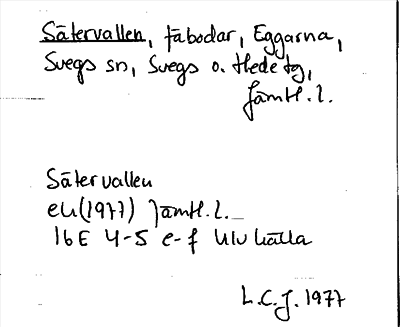 Sätervallen, fäbodar, Eggarna,
Svegs sn, Svegs o. Hede tg,
Jämtl. l.
Sätervallen
ek(1977) Jämtl. l.
16E 4-5 e-f Ulvkälla
L.C.J. 1977